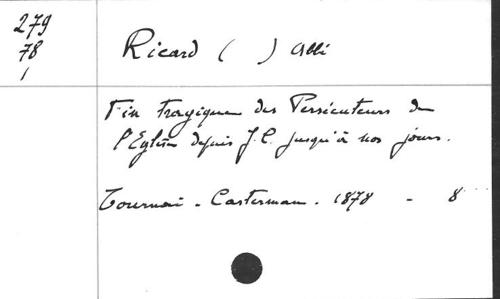 279
78
1
Ricard ( ) Abbé
Fin tragique des Persécuteurs de
l'Eglise depuis J.C. jusqu'à nos jours.
Tournai - Casterman - 1878 - 8